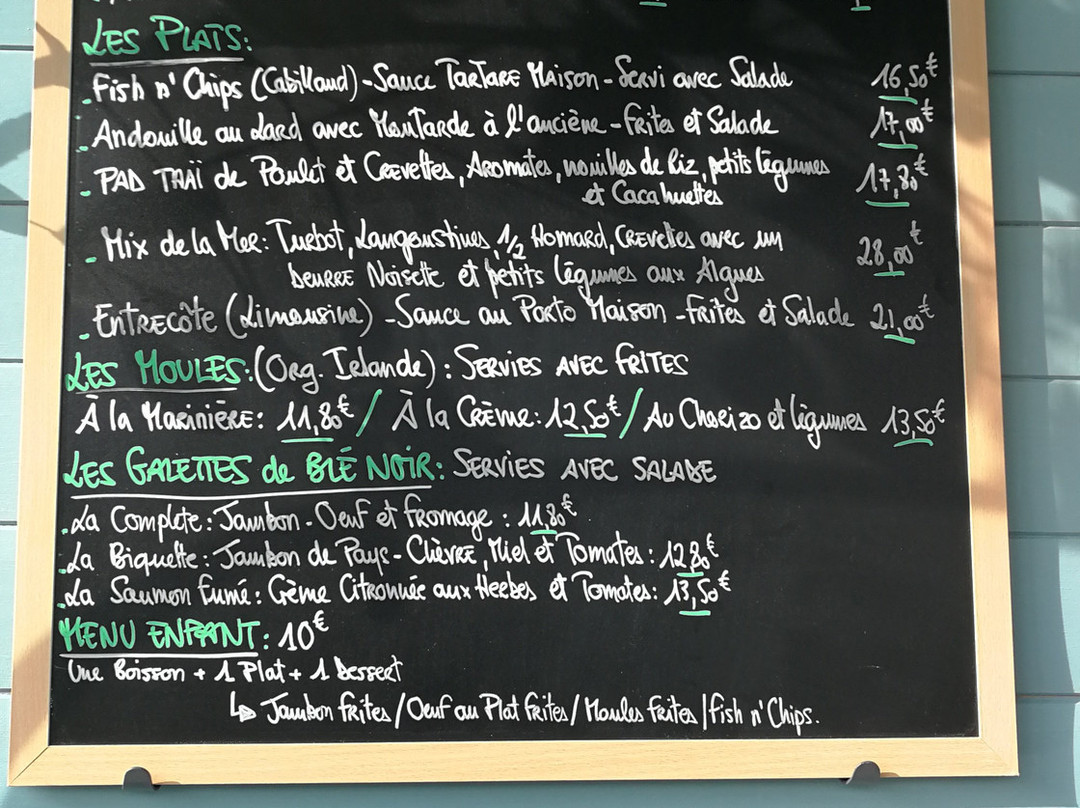 LES PLATS:
. Fish n' Chips (Cabillaud) - Sauce TARTARE MAISON - Servi avec Salade 16,50€
. Andouille au Lard avec Moutarde à l'ancière - Frites et Salade 17,00€
. PAD THAÏ de Poulet et Crevettes, AROMATES, nouilles de Riz, petits légumes 17,80€
et Cacahuettes
. Mix de la Mer: Turbot, Langoustines, 1/2 Homard, Crevettes avec un 28,00€
beurre Noisette et petits légumes aux Algues
. Entrecôte (Limousine) - Sauce au Porto Maison - Frites et Salade 21,00€
LES MOULES: (Org. Irlande): SERVIES AVEC FRITES
À la Marinière: 11,80€ / À la Crème: 12,50€ / Au Chorizo et légumes 13,50€
LES GALETTES de BLÉ NOIR: SERVIES AVEC SALADE
. La Complete: Jambon - Oeuf et fromage: 11,80€
. La Biquette: Jambon de Pays - Chèvre, Miel et Tomates: 12,80€
. La Saumon Fumé: Crème Citronnée aux Herbes et Tomates: 13,50€
MENU ENFANT: 10€
Une Boisson + 1 Plat + 1 Dessert
↳ Jambon frites / Oeuf au Plat frites / Moules frites / fish n' Chips.